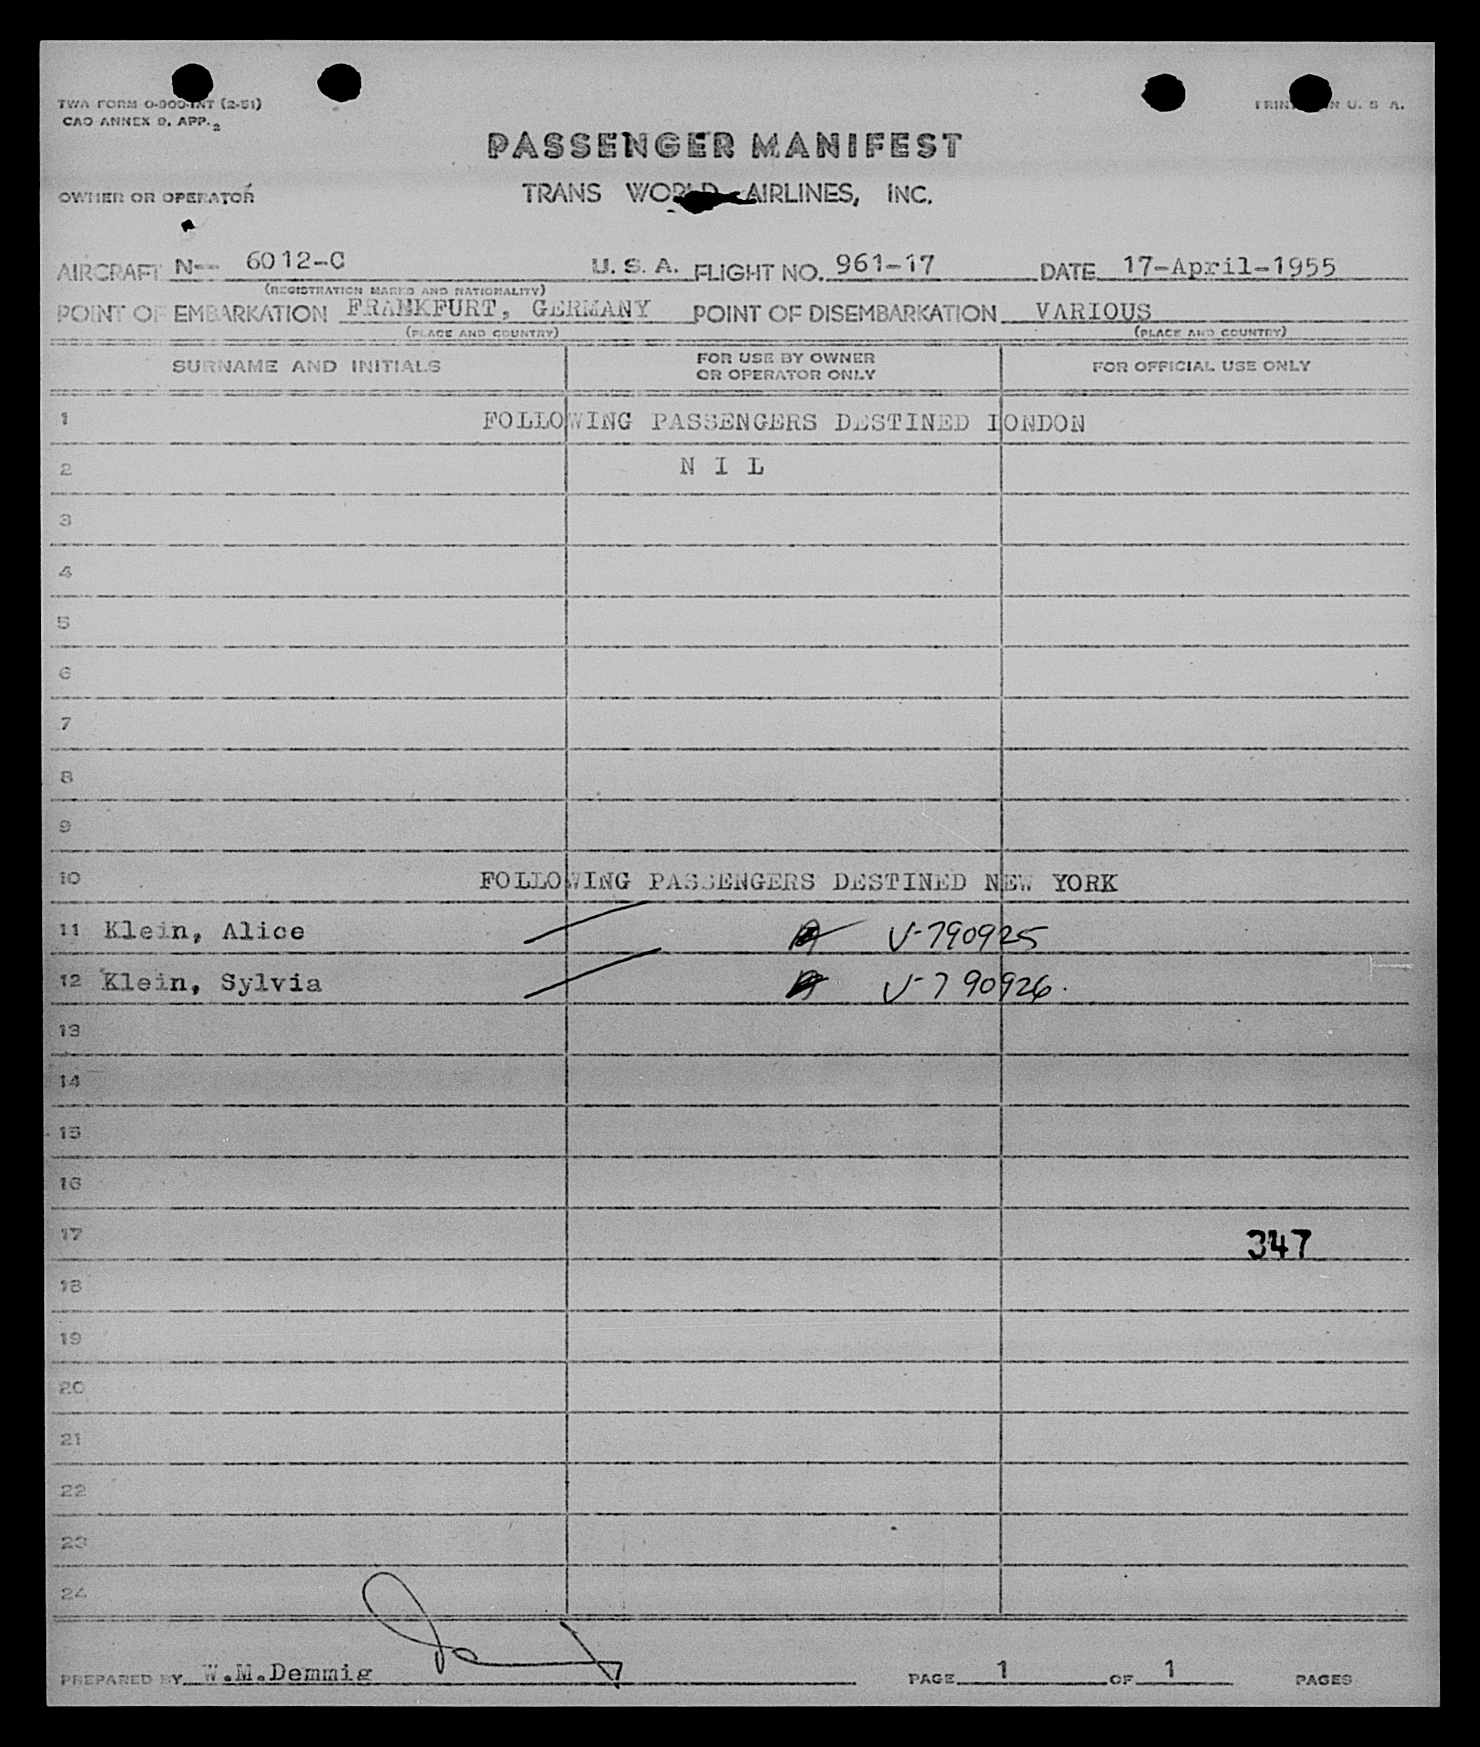 TWA FORM O-300-INT (2-51)
CAO ANNEX 9, APP. 2
PRINTED IN U. S. A.
PASSENGER MANIFEST
OWNER OR OPERATOR TRANS WORLD AIRLINES, INC.
AIRCRAFT N-- 6012-C U. S. A. FLIGHT NO. 961-17 DATE 17-April-1955
(REGISTRATION MARKS AND NATIONALITY)
POINT OF EMBARKATION FRANKFURT, GERMANY POINT OF DISEMBARKATION VARIOUS
(PLACE AND COUNTRY) (PLACE AND COUNTRY)
SURNAME AND INITIALS FOR USE BY OWNER OR OPERATOR ONLY FOR OFFICIAL USE ONLY
1 FOLLOWING PASSENGERS DESTINED LONDON
2 N I L
3
4
5
6
7
8
9
10 FOLLOWING PASSENGERS DESTINED NEW YORK
11 Klein, Alice V-790925
12 Klein, Sylvia V-790926.
13
14
15
16
17 347
18
19
20
21
22
23
24
PREPARED BY W.M.Demmig PAGE 1 OF 1 PAGES